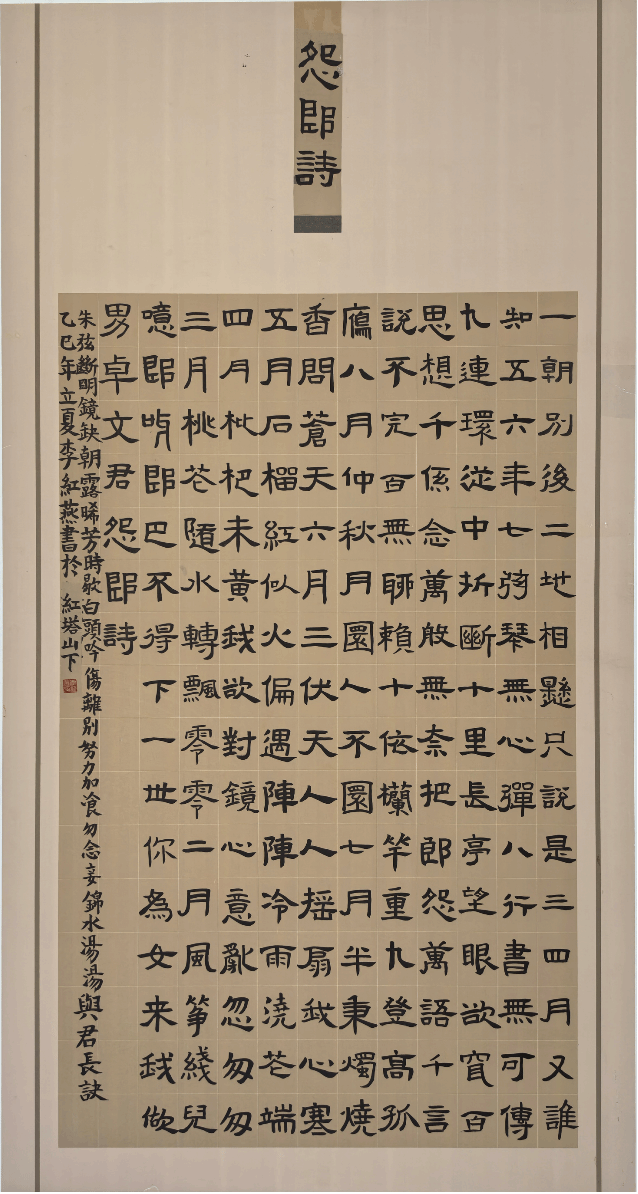 怨郎詩
一朝別後二地相懸只說是三四月又誰
知五六年七弦琴無心彈八行書無可傳
九連環從中折斷十里長亭望眼欲穿百
思想千係念萬般無奈把郎怨萬語千言
說不完百無聊賴十依欄竿重九登高孤
鴈八月仲秋月圓人不圓七月半秉燭燒
香問蒼天六月三伏天人人摇扇我心寒
五月石榴紅似火偏遇陣陣冷雨澆花端
四月枇杷未黃我欲對鏡心意亂忽匆匆
三月桃花隨水轉飄零零二月風筝綫兒
噫郎呀郎巴不得下一世你為女来我做
男卓文君怨郎詩
朱弦斷明鏡缺朝露晞芳時歇白頭吟傷離別努力加飡勿念妾錦水湯湯與君長訣
乙巳年立夏李紅燕書於紅塔山下